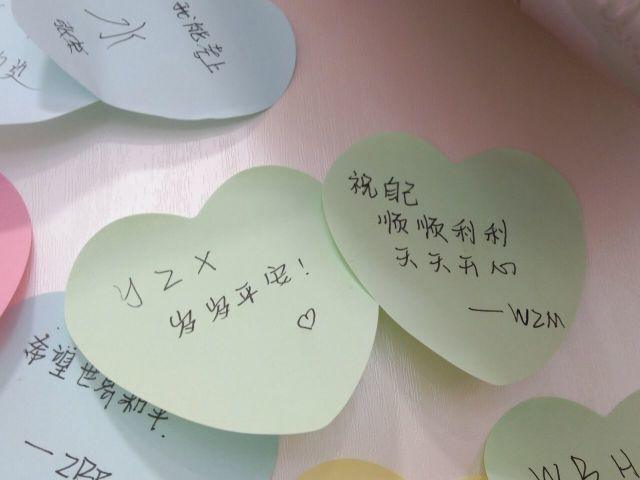 我能考上
祝自己
顺顺利利
天天开心
—WZM
YZX
岁岁平安!
希望世界和平.
WBH